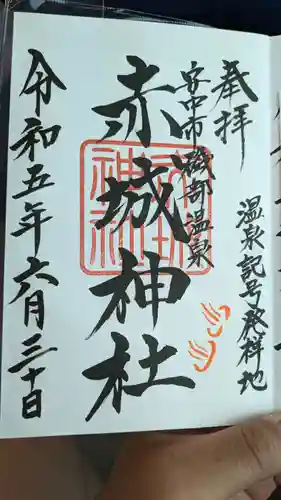 奉拝
温泉記号発祥地
安中市磯部温泉
赤城神社
令和五年六月三十日